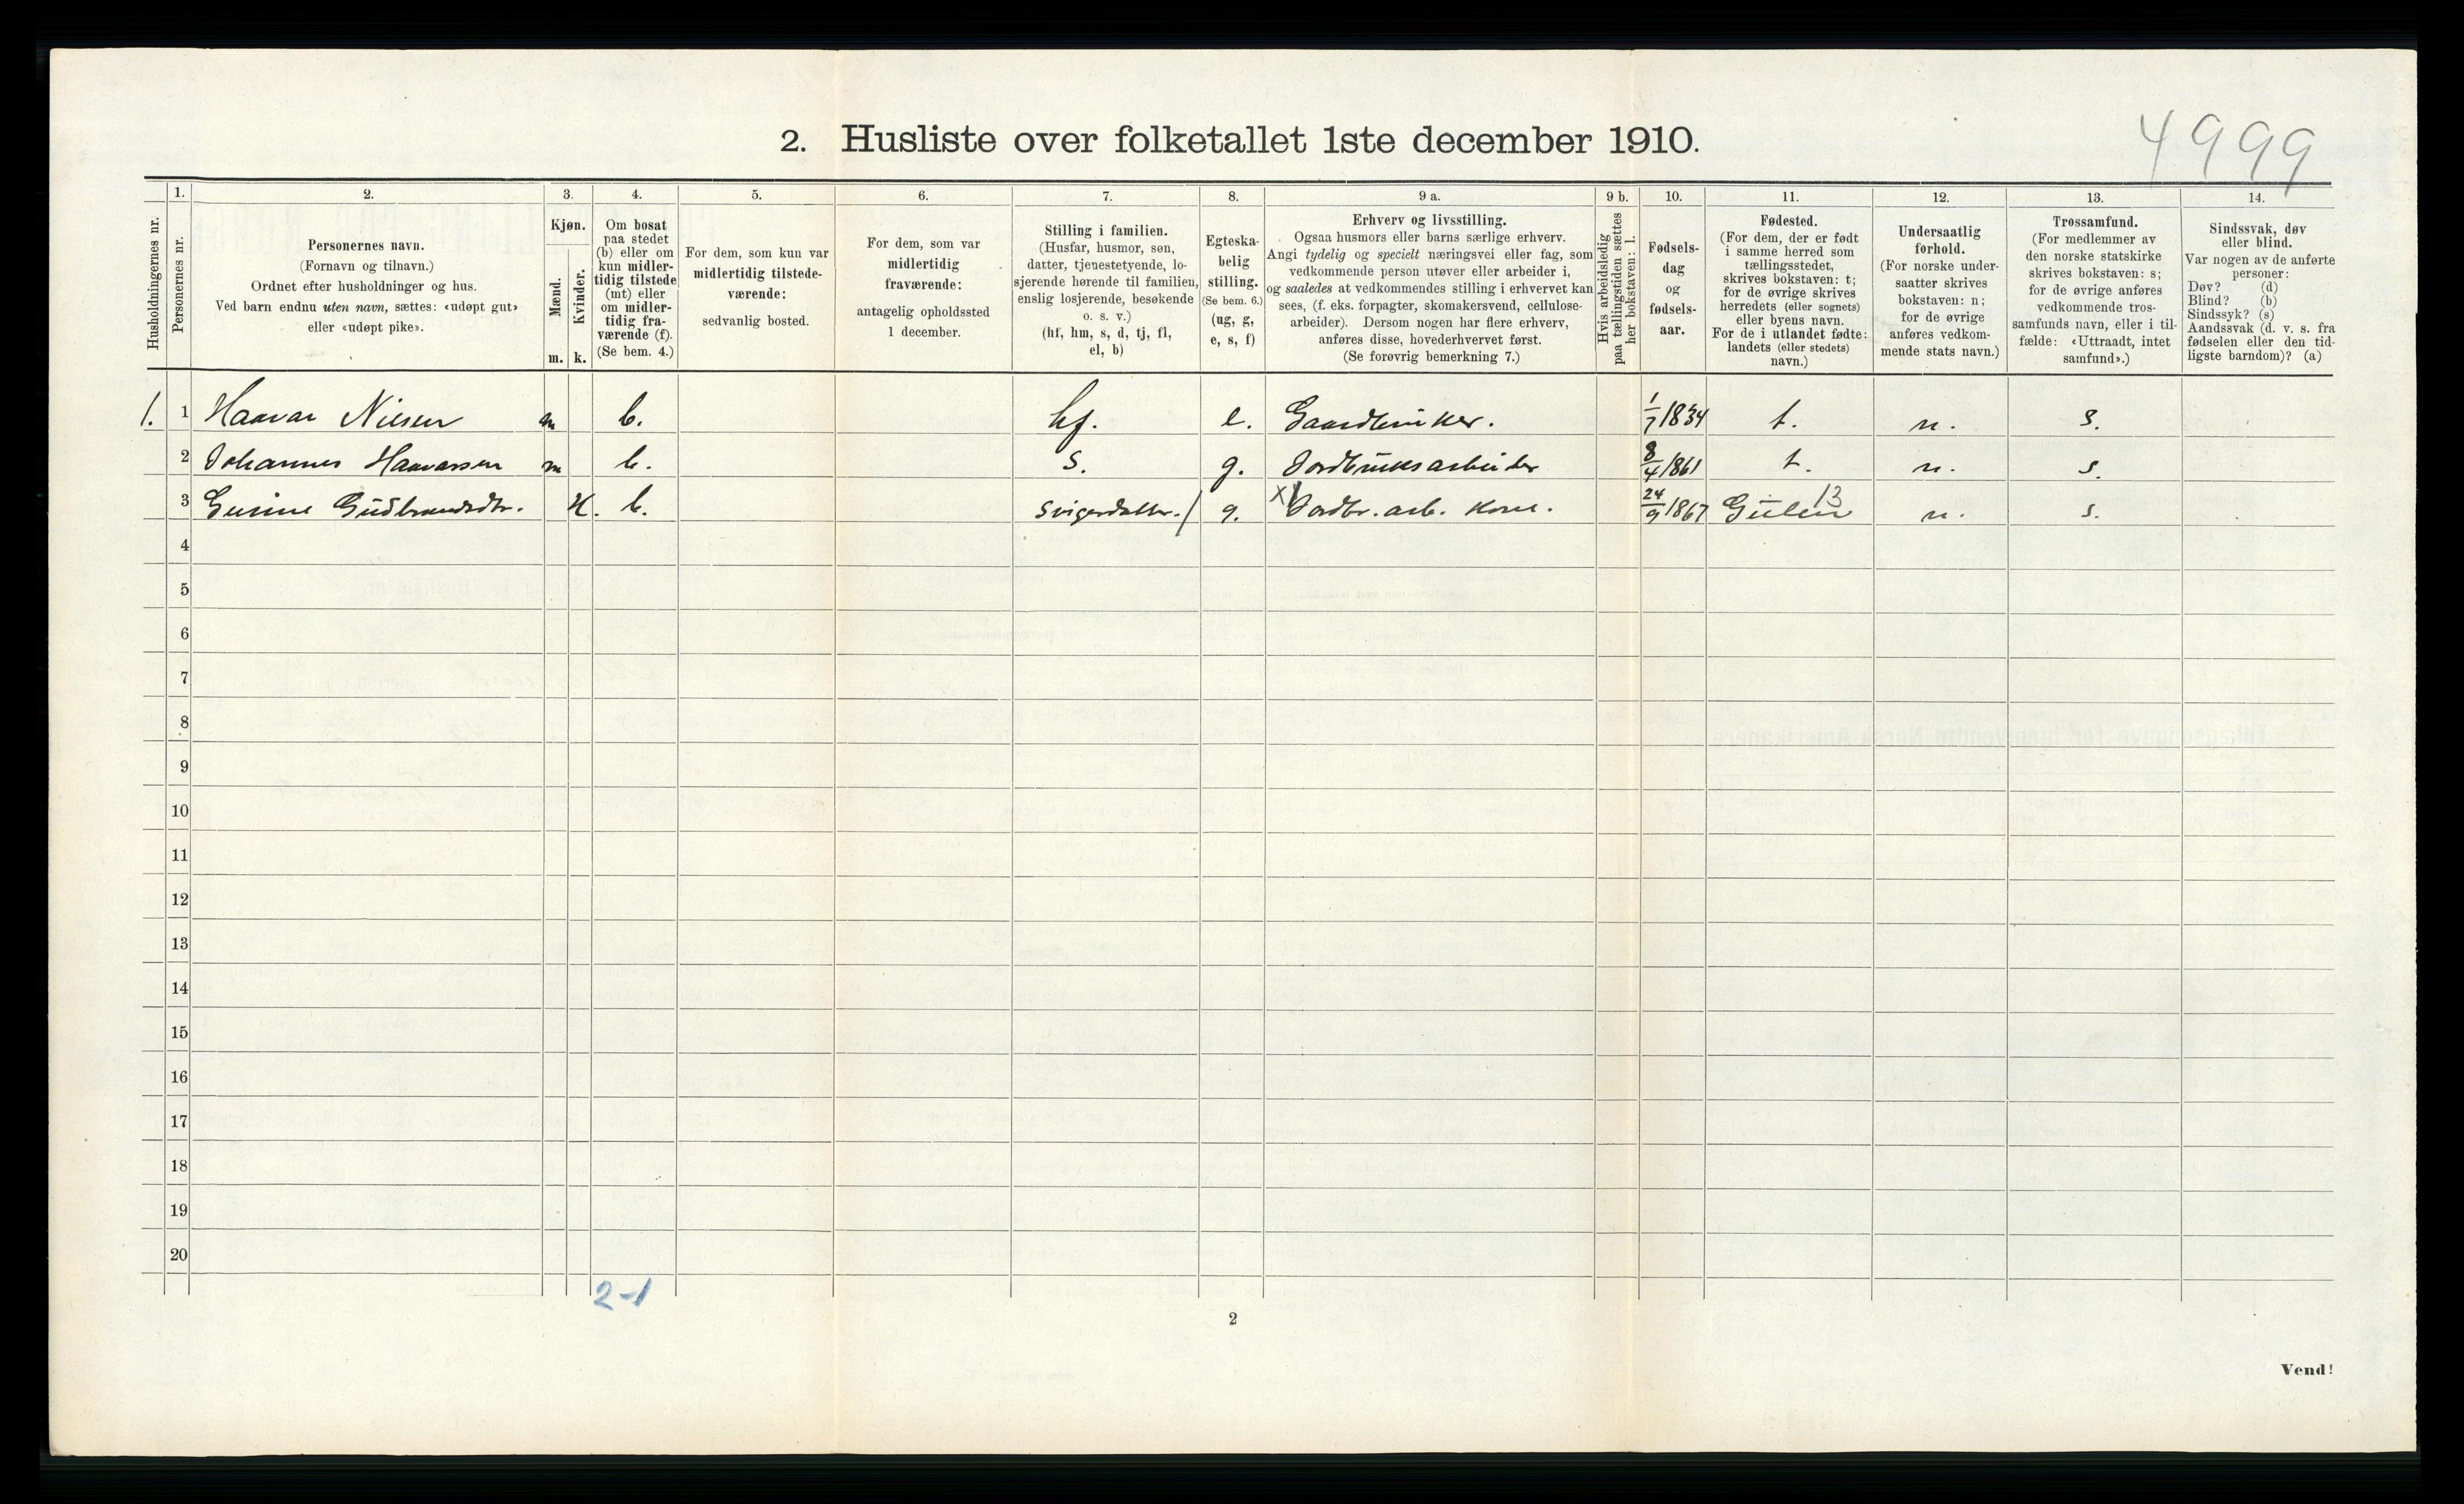 4999
2. Husliste over folketallet 1ste december 1910.
Husholdningernes nr.
1.
Personernes nr.
2.
Personernes navn.
(Fornavn og tilnavn.)
Ordnet efter husholdninger og hus.
Ved barn endnu uten navn, sættes: «udøpt gut»
eller «udøpt pike».
3.
Kjøn.
Mænd.
Kvinder.
m. k.
4.
Om bosat
paa stedet
(b) eller om
kun midler-
tidig tilstede
(mt) eller
om midler-
tidig fra-
værende (f).
(Se bem. 4.)
5.
For dem, som kun var
midlertidig tilstede-
værende:
sedvanlig bosted.
6.
For dem, som var
midlertidig
fraværende:
antagelig opholdssted
1 december.
7.
Stilling i familien.
(Husfar, husmor, søn,
datter, tjenestetyende, lo-
sjerende hørende til familien,
enslig losjerende, besøkende
o. s. v.)
(hf, hm, s, d, tj, fl,
el, b)
8.
Egteska-
belig
stilling.
(Se bem. 6.)
(ug, g,
e, s, f)
9 a.
Erhverv og livsstilling.
Ogsaa husmors eller barns særlige erhverv.
Angi tydelig og specielt næringsvei eller fag, som
vedkommende person utøver eller arbeider i,
og saaledes at vedkommendes stilling i erhvervet kan
sees, (f. eks. forpagter, skomakersvend, cellulose-
arbeider). Dersom nogen har flere erhverv,
anføres disse, hovederhvervet først.
(Se forøvrig bemerkning 7.)
9 b.
Hvis arbeidsledig
paa tællingstiden sættes
her bokstaven: l.
10.
Fødsels-
dag
og
fødsels-
aar.
11.
Fødested.
(For dem, der er født
i samme herred som
tællingsstedet,
skrives bokstaven: t;
for de øvrige skrives
herredets (eller sognets)
eller byens navn.
For de i utlandet fødte:
landets (eller stedets)
navn.)
12.
Undersaatlig
forhold.
(For norske under-
saatter skrives
bokstaven: n;
for de øvrige
anføres vedkom-
mende stats navn.)
13.
Trossamfund.
(For medlemmer av
den norske statskirke
skrives bokstaven: s;
for de øvrige anføres
vedkommende tros-
samfunds navn, eller i til-
fælde: «Uttraadt, intet
samfund».)
14.
Sindssvak, døv
eller blind.
Var nogen av de anførte
personer:
Døv? (d)
Blind? (b)
Sindssyk? (s)
Aandssvak (d. v. s. fra
fødselen eller den tid-
ligste barndom)? (a)
1. 1 Haavar Nilsen m b. hf. e. Gaardbruker. 1/7 1834 t. n. s.
2 Johannes Haavarsen m b. s. g. Jordbruksarbeider 8/4 1861 t. n. s.
3 Gurine Gudbrandsdtr. K. b. Svigerdatter. / g. X Jordbr. arb. kone. 24/9 1867 Gulen 13 n. s.
4
5
6
7
8
9
10
11
12
13
14
15
16
17
18
19
20
2-1
2
Vend!